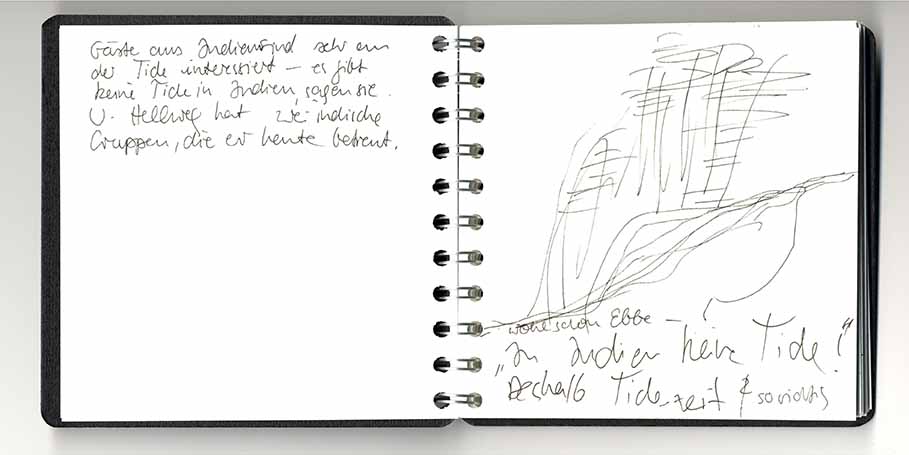 Gäste aus Indien sind sehr an
der Tide interessiert – es gibt
keine Tide in Indien, sagen sie.
U. Hellweg hat zwei indische
Gruppen, die er heute betreut.
wohl schon Ebbe –
„In Indien keine Tide!“
Deshalb Tide-zeit so wichtig